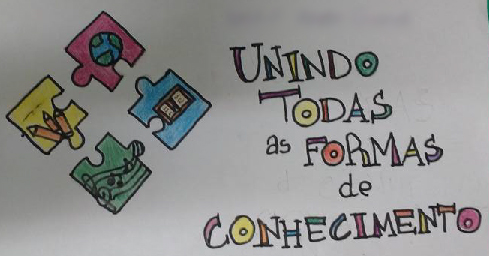 UNINDO
TODAS
as FORMAS
de
CONHECIMENTO